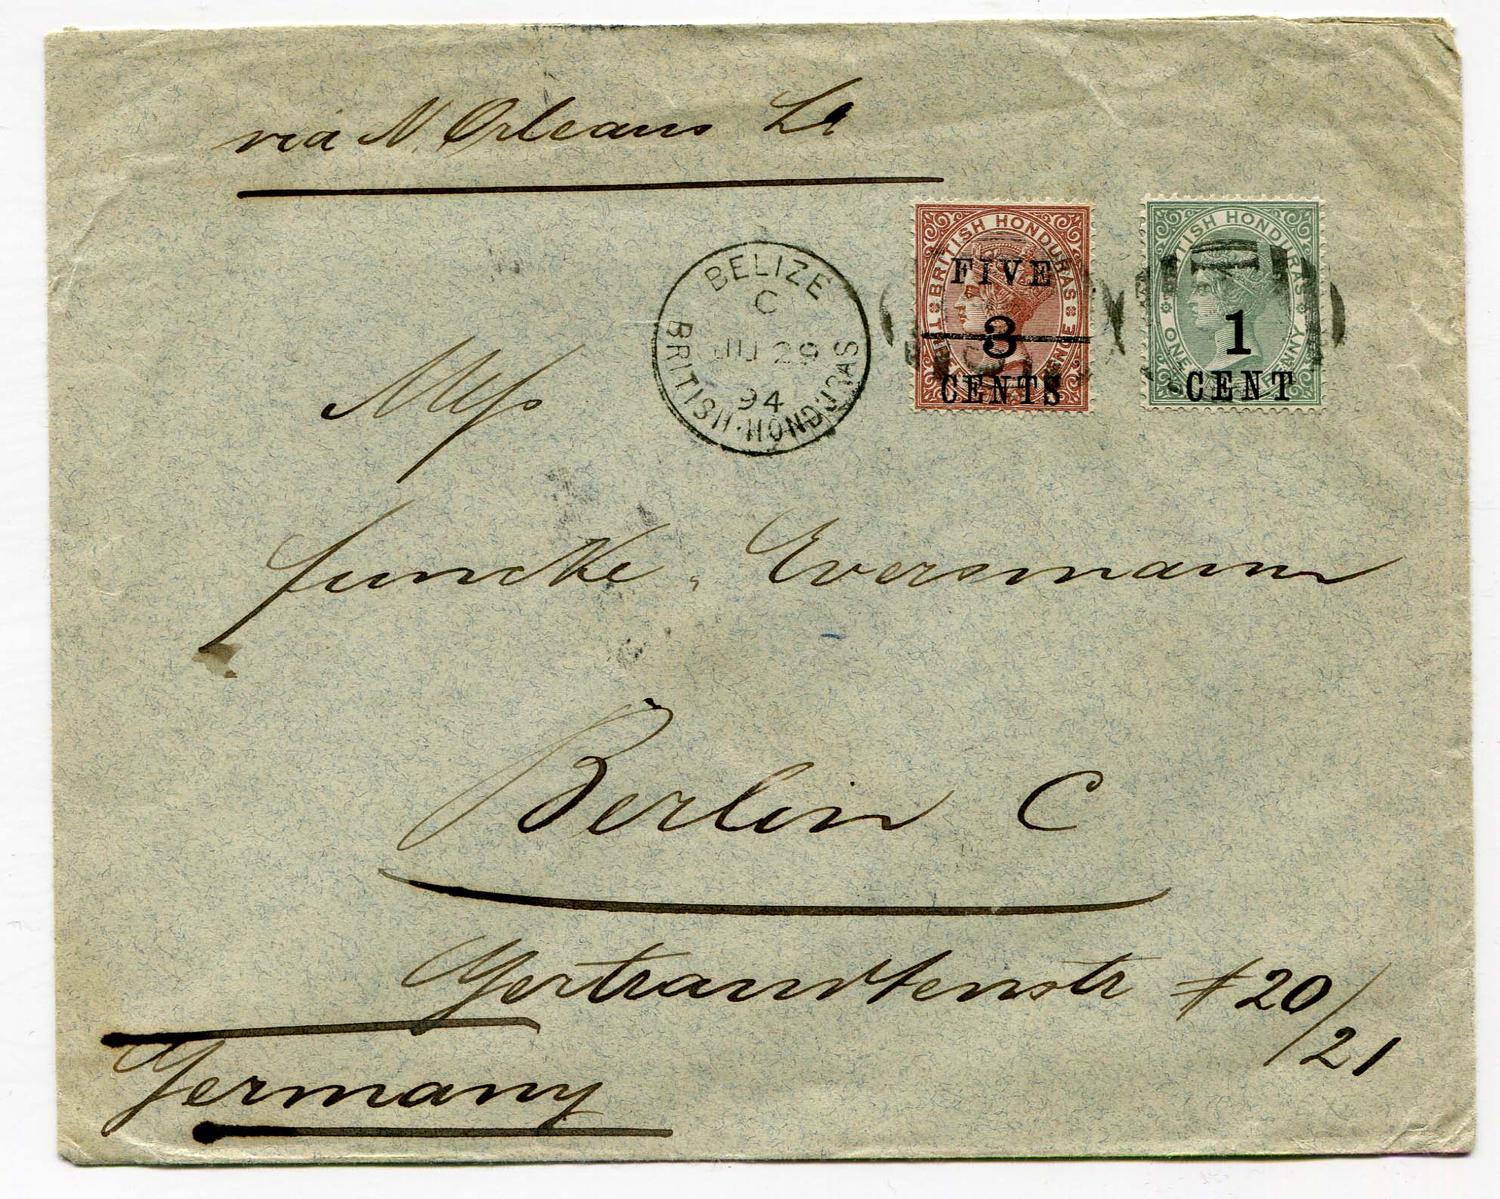 via N. Orleans La
BELIZE
C
JU 29
94
BRITISH·HONDURAS
BRITISH HONDURAS
FIVE
3
CENTS
BRITISH HONDURAS
ONE PENNY
1
CENT
Mess
Juncke, Eversmann
Berlin C
Gertraudtenstr # 20/21
Germany